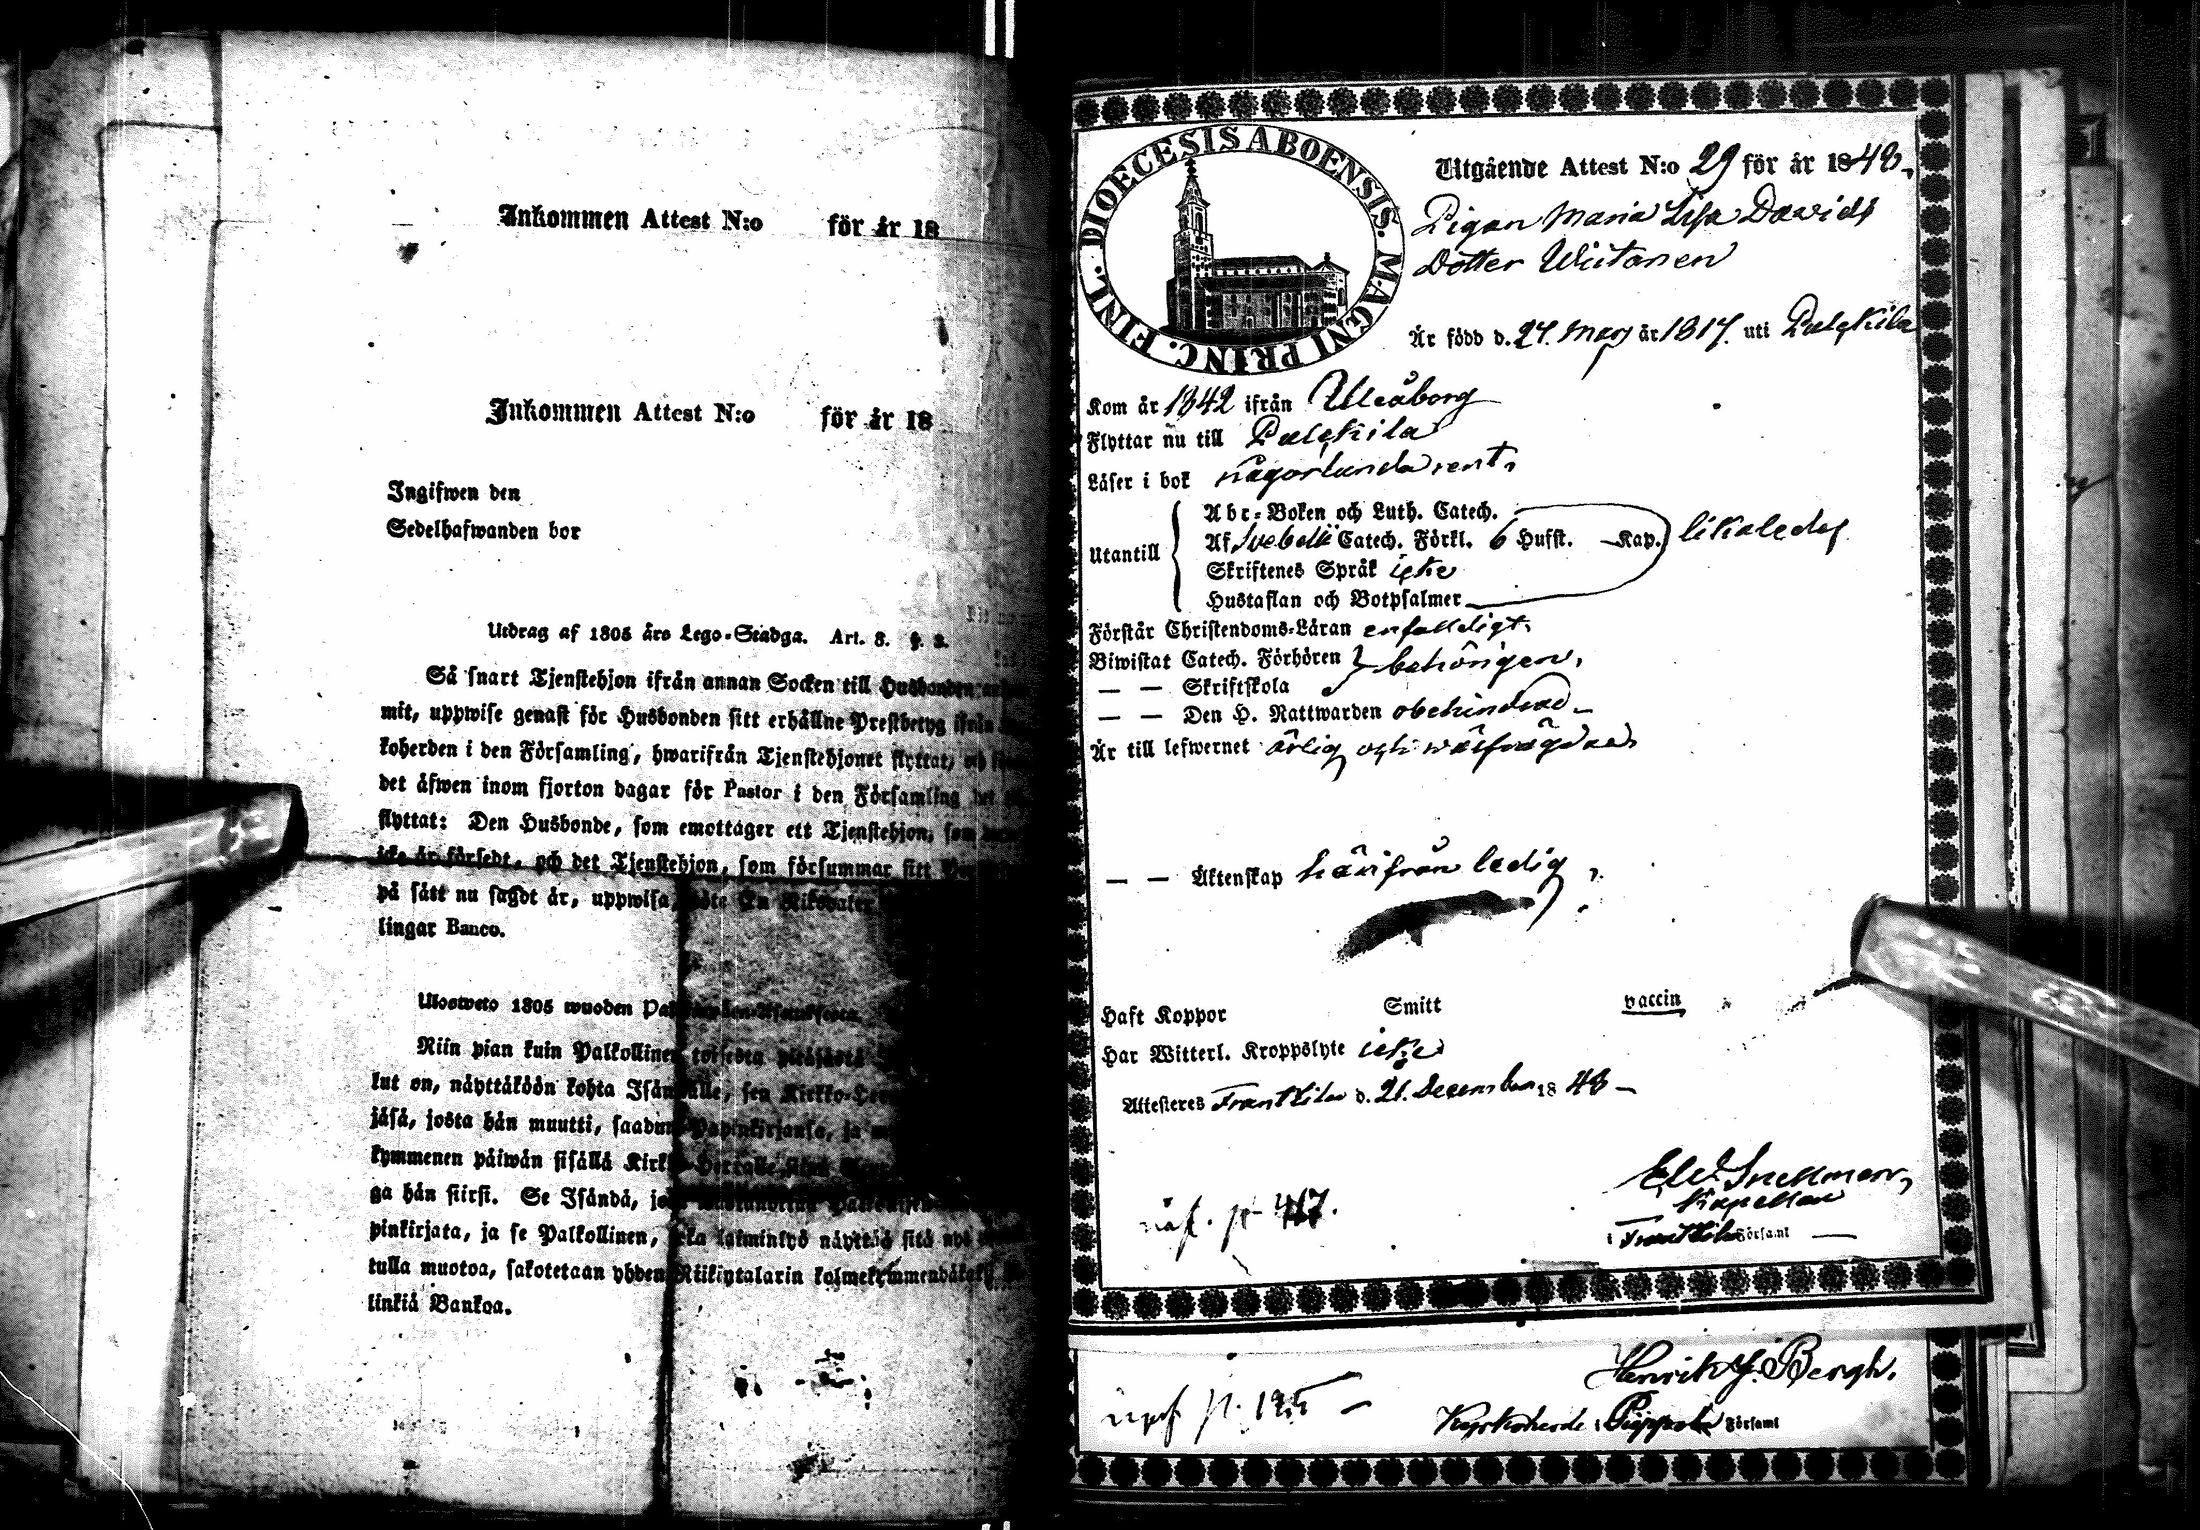 Inkommen Attest N:o för år 18
Inkommen Attest N:o för år 18
Ingifwen den
Sedelhafwanden bor
Utdrag af 1805 års Lego-Stadga. Art. 8. §. 2.
Så snart Tjenstehjon ifrån annan Socken till Husbonden
mit, uppwise genast för Husbonden sitt erhållne Prestbetyg ifrån
koherden i den Församling, hwarifrån Tjenstehjonet flyttat, och
det åfwen inom fjorton dagar för Pastor i den Församling det
flyttat: Den Husbonde, som emottager ett Tjenstehjon, som
icke är försedt, och det Tjenstehjon, som försummar sitt
på sätt nu sagdt är, uppwisa, böte En Riksdaler
lingar Banco.
Ulosweto 1805 wuoden
Niin pian kuin Palkollinen toisesta pitäjästä
lut on, näyttäköön kohta Isännälle, sen Kirkko-
jäså, josta hån muutti, saadun Papinkirjansa, ja
kymmenen päiwån sisällä Kirkko-Herralle, siinä
ga hån siirsi. Se Isåndå,
pinkirjata, ja se Palkollinen, joka laiminlyö näyttää sitå
tulla muotoa, sakotetaan yhden Riikiptalarin kolmekymmendåkah
linkiå Bankoa.
DIOECESIS ABOENSIS. MAGNI PRINC. FINL.
Utgående Attest N:o 29 för år 1848.
Pigan Maria Lisa Davids
Dotter Wiitanen
Är född d. 27. Mars år 1817. uti Pulckila
Kom år 1842 ifrån Uleåborg
Flyttar nu till Pulckila
Läser i bok någorlunda rent,
Utantill
Abc-Boken och Luth. Catech.
Af Svebelii Catech. Förkl. 6 Hufst. Kap. likaledes
Skriftenes Språk icke
Hustaflan och Botpsalmer
Förstår Christendoms-Läran enfaldigt.
Biwistat Catech. Förhören behörigen.
— — Skriftskola
— — Den H. Nattwarden obehindrad
Är till lefwernet ärlig och wälfrägdad
— — Äktenskap härifrån ledig
Haft Koppor Smitt vaccin
Har Witterl. Kroppslyte icke
Attesteres Frantsila d. 21. December 1848
El. Snellman,
Kapellan
i Frantsila Församl
p. 417.
Henrik J. Bergh.
Kyrkoherde i Pippola Församl
p. 195